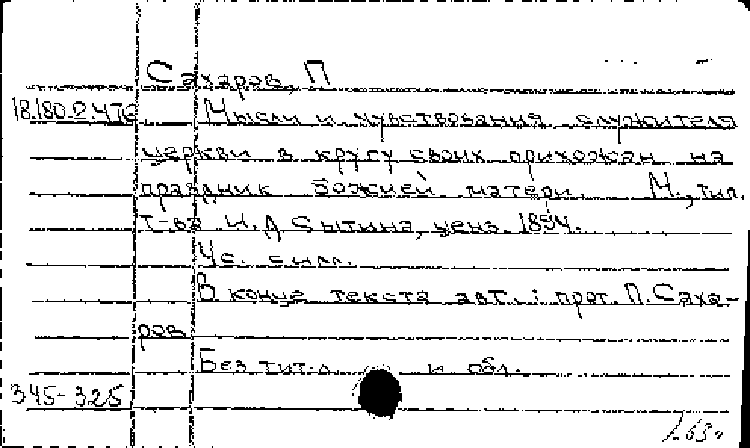 Сахаров, П
18.180.2.476 Мысли и чувствования служителя
церкви в кругу своих прихожан на
праздник Божией матери. М., тип.
Т-ва И. Д Сытина, ценз. 1894.
9 с. илл.
В конце текста авт.: прот. П. Саха-
ров
Без тит. л. и обл.
345-325